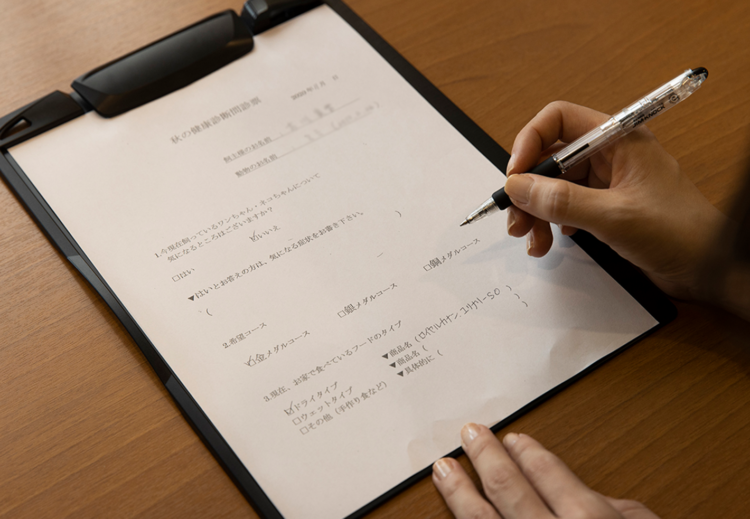 秋の健康診断問診票
年 月 日
飼主様のお名前
動物のお名前
1.今現在飼っているワンちゃん・ネコちゃんについて
気になるところはございますか?
□はい ☑いいえ
▼はいとお答えの方は、気になる症状をお書き下さい。
( )
2.希望コース
☑金メダルコース □銀メダルコース □銅メダルコース
3.現在、お家で食べているフードのタイプ
☑ドライタイプ ▼商品名 (ロイヤルカナン ユリナリーSO )
□ウェットタイプ ▼商品名 ( )
□その他 (手作り食など) ▼具体的に ( )